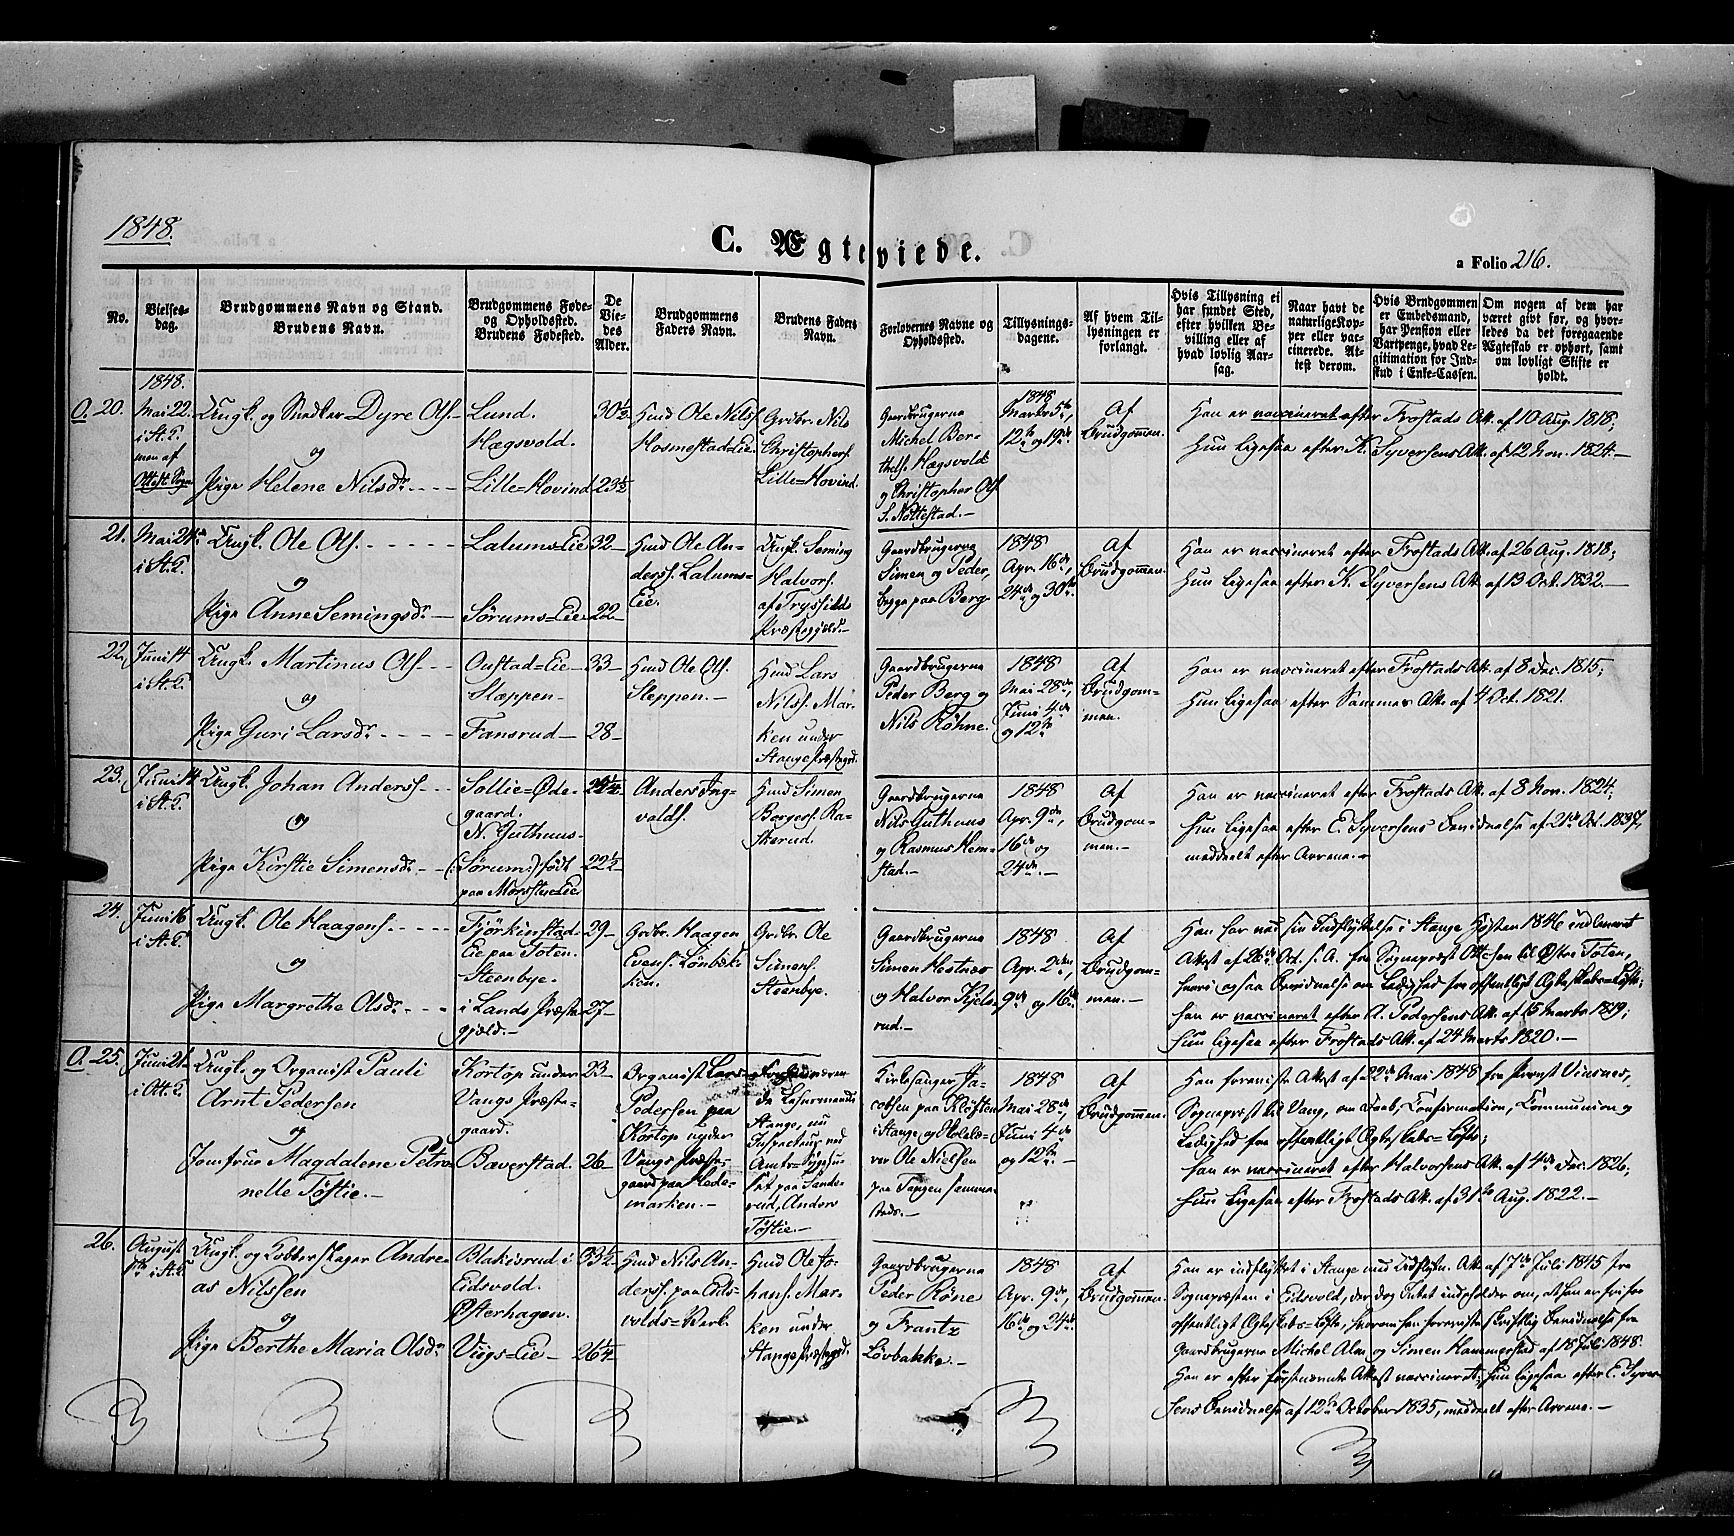 1848.
C. Ægteviede.
a Folio 216.
No.
Vielses-
dag.
Brudgommens Navn og Stand.
Brudens Navn.
Brudgommens Føde-
og Opholdssted.
Brudens Fødested.
De
Vie-
des
Alder.
Brudgommens
Faders Navn.
Brudens Faders
Navn.
Forlovernes Navne og
Opholdssted.
Tillysnings-
dagene.
Af hvem Til-
lysningen er
forlangt.
Hvis Tillysning ei
har fundet Sted,
efter hvilken Be-
villing eller af
hvad lovlig Aar-
sag.
Naar havt de
naturlige Kop-
per eller vac-
cinerede. At-
test derom.
Hvis Brudgommen
er Embedsmand,
har Pension eller
Vartpenge, hvad Le-
gitimation for Ind-
skud i Enke-Cassen.
Om nogen af dem har
været givt før, og hvor-
ledes da det foregaaende
Ægteskab er ophørt, samt
om lovligt Skifte er
holdt.
1848.
O. 20.
Mai 22.
i St. K.
men af
Ottest. Sogn
Ungk. og Snedker Dyre Ols.
og
Pige Helene Nilsdr.
Lund.
Hægsvold.
Lille-Hovind
30½
23½
Husmd Ole Nils.
Hosmestad-Eie.
Grdbr. Nils
Christophers.
Lille-Hovind.
Gaardbrugerne
Michel Ber-
thels. Hægsvold
og Christopher Ols.
S. Nøttestad.
1848
Marts 5te,
12te og 19de
Af
Brudgommen.
Han er vaccineret efter Frostads Att. af 10 Aug. 1818;
Hun ligesaa efter K. Syversens Att. af 12 Nov. 1824.
21.
Mai 24de
i St. K.
Ungk. Ole Ols.
og
Pige Anne Semingsdr.
Lalums-Eie
Sørums-Eie
32
22
Husmd Ole An-
derss. Lalums-
Eie.
Ungk. Seming
Halvors.
af Tryssilds
Præstegjæld.
Gaardbrugerne
Simen og Peder,
begge paa Berg
1848
Apr. 16de,
24de og 30te
Af
Brudgommen.
Han er vaccineret efter Frostads Att. af 26 Aug. 1818;
Hun ligesaa efter K. Syversens Att. af 13 Oct. 1832.
22.
Juni 14
i St. K.
Ungk. Martinus Ols.
og
Pige Guri Larsdr.
Oustad-Eie
Steppen
Fansrud
33
28
Husmd Ole Ols.
Steppen.
Husmd Lars
Nilss. Mar-
ken under
Stange Præstegrd.
Gaardbrugerne
Peder Berg og
Nils Røhne.
1848
Mai 28de,
Juni 4de
og 12te
Af
Brudgom-
men.
Han er vaccineret efter Frostads Att. af 8 Dec. 1815;
Hun ligesaa efter Sammes Att. af 4 Oct. 1821.
23.
Juni 14
i St. K.
Ungk. Johan Anderss.
og
Pige Kirstie Simensdr.
Sollie-Øde-
gaard.
N. Guthuus-
(Sørum) født
paa Morstue-Eie
22½
Anders Ing-
valds.
Husmd Simen
Borgers. Ra-
skerud.
Gaardbrugerne
Nils Guthuus
og Rasmus Hem-
stad.
1848
Apr. 9de,
16de og
24de.
Af
Brudgom-
men.
Han er vaccineret efter Frostads Att. af 8 Nov. 1824;
Hun ligesaa efter E. Syversens Bevidnelse af 21de Oct. 1837,
meddeelt efter Arrene.
24.
Juni 16
i St. K.
Ungk. Ole Haagens.
og
Pige Margrethe Olsdr.
Fjørkinstad-
Eie paa Toten.
Steenbye
i Lands Præste-
gjæld.
29
27
Grdbr. Haagen
Evens. Lønbæk-
ken.
Grdbr. Ole
Simens.
Steenbye.
Gaardbrugerne
Simen Hestnæs
og Halvor Kjels-
rud.
1848
Apr. 2den,
9de og 16de
Af
Brudgom-
men.
Han har ved sin Indflyttelse i Stange Høsten 1846 indleveret
Attest af 26de Oct. s. A. fra Sognepræst Ottesen til Østre Toten,
hvori ogsaa Bevidnelse om Ledighed fra offentligt Egteskabs-Løfte;
Han er vaccineret efter A. Pedersens Att. af 15 Marts 1819;
Hun ligesaa efter Frostads Att. af 24 Marts 1820.
O. 25.
Juni 21
i Ott. K.
Ungk. og Organist Pauli
Arnt Pedersen
og
Jomfrue Magdalene Petro-
nelle Tøstie.
Kortop under
Vangs Præste-
gaard.
Bæverstad.
23
26
Organist Lars
Pedersen paa
Kortop under
Vangs Præste-
gaard paa Hede-
marken.
de Lehnsmand i
Stange, nu
Inspecteur ved
Amts-Sygehu-
set paa Sande-
rud, Anders
Tøstie.
Kirkesanger Ja-
cobsen paa Kløften
i Stange og Skolelæ-
rer Ole Nielsen
paa Tangen samme-
steds.
1848
Mai 28de,
Juni 4de
og 12te
Af
Brudgommen.
Han foreviste Attest af 22de Mai 1848 fra Provst Vinsnes,
Sognepræst til Vang, om Daab, Confirmation, Communion og
Ledighed fra offentligt Egteskabs-Løfte;
Han er vaccineret efter Halvorsens Att. af 4de Dec. 1826.
Hun ligesaa efter Frostads Att. af 31te Aug. 1822.
26.
August
i St. K.
Ungk. og Kobberslager Andre-
as Nilssen
og
Pige Berthe Maria Olsdr.
Blakisrud i
Eidsvold.
Østerhagen.
Viigs-Eie
33½
26¼
Husmd Nils An-
derss. paa Eids-
volds-Værk.
Husmd Ole Jo-
hans. Mar-
ken under
Stange Præstegrd.
Gaardbrugerne
Peder Røne
og Frantz
Løvbakke.
1848
Apr. 9de,
16de og 24de
Af
Brudgommen.
Han er indflyttet i Stange med Udflytn. Att. af 17de Juli 1845 fra
Sognepræsten i Eidsvold, der dog Intet indeholder om, at han er fri for
offentligt Egteskabs-Løfte, hvorom han foreviste skriftlig Bevidnelse fra
Gaardbrugerne Michel Alm og Simen Hammerstad af 18 Juli 1848.
Han er efter førstnævnte Attest vaccineret; Hun ligesaa efter E. Syver-
sens Bevidnelse af 12te October 1835, meddeelt efter Arrene.